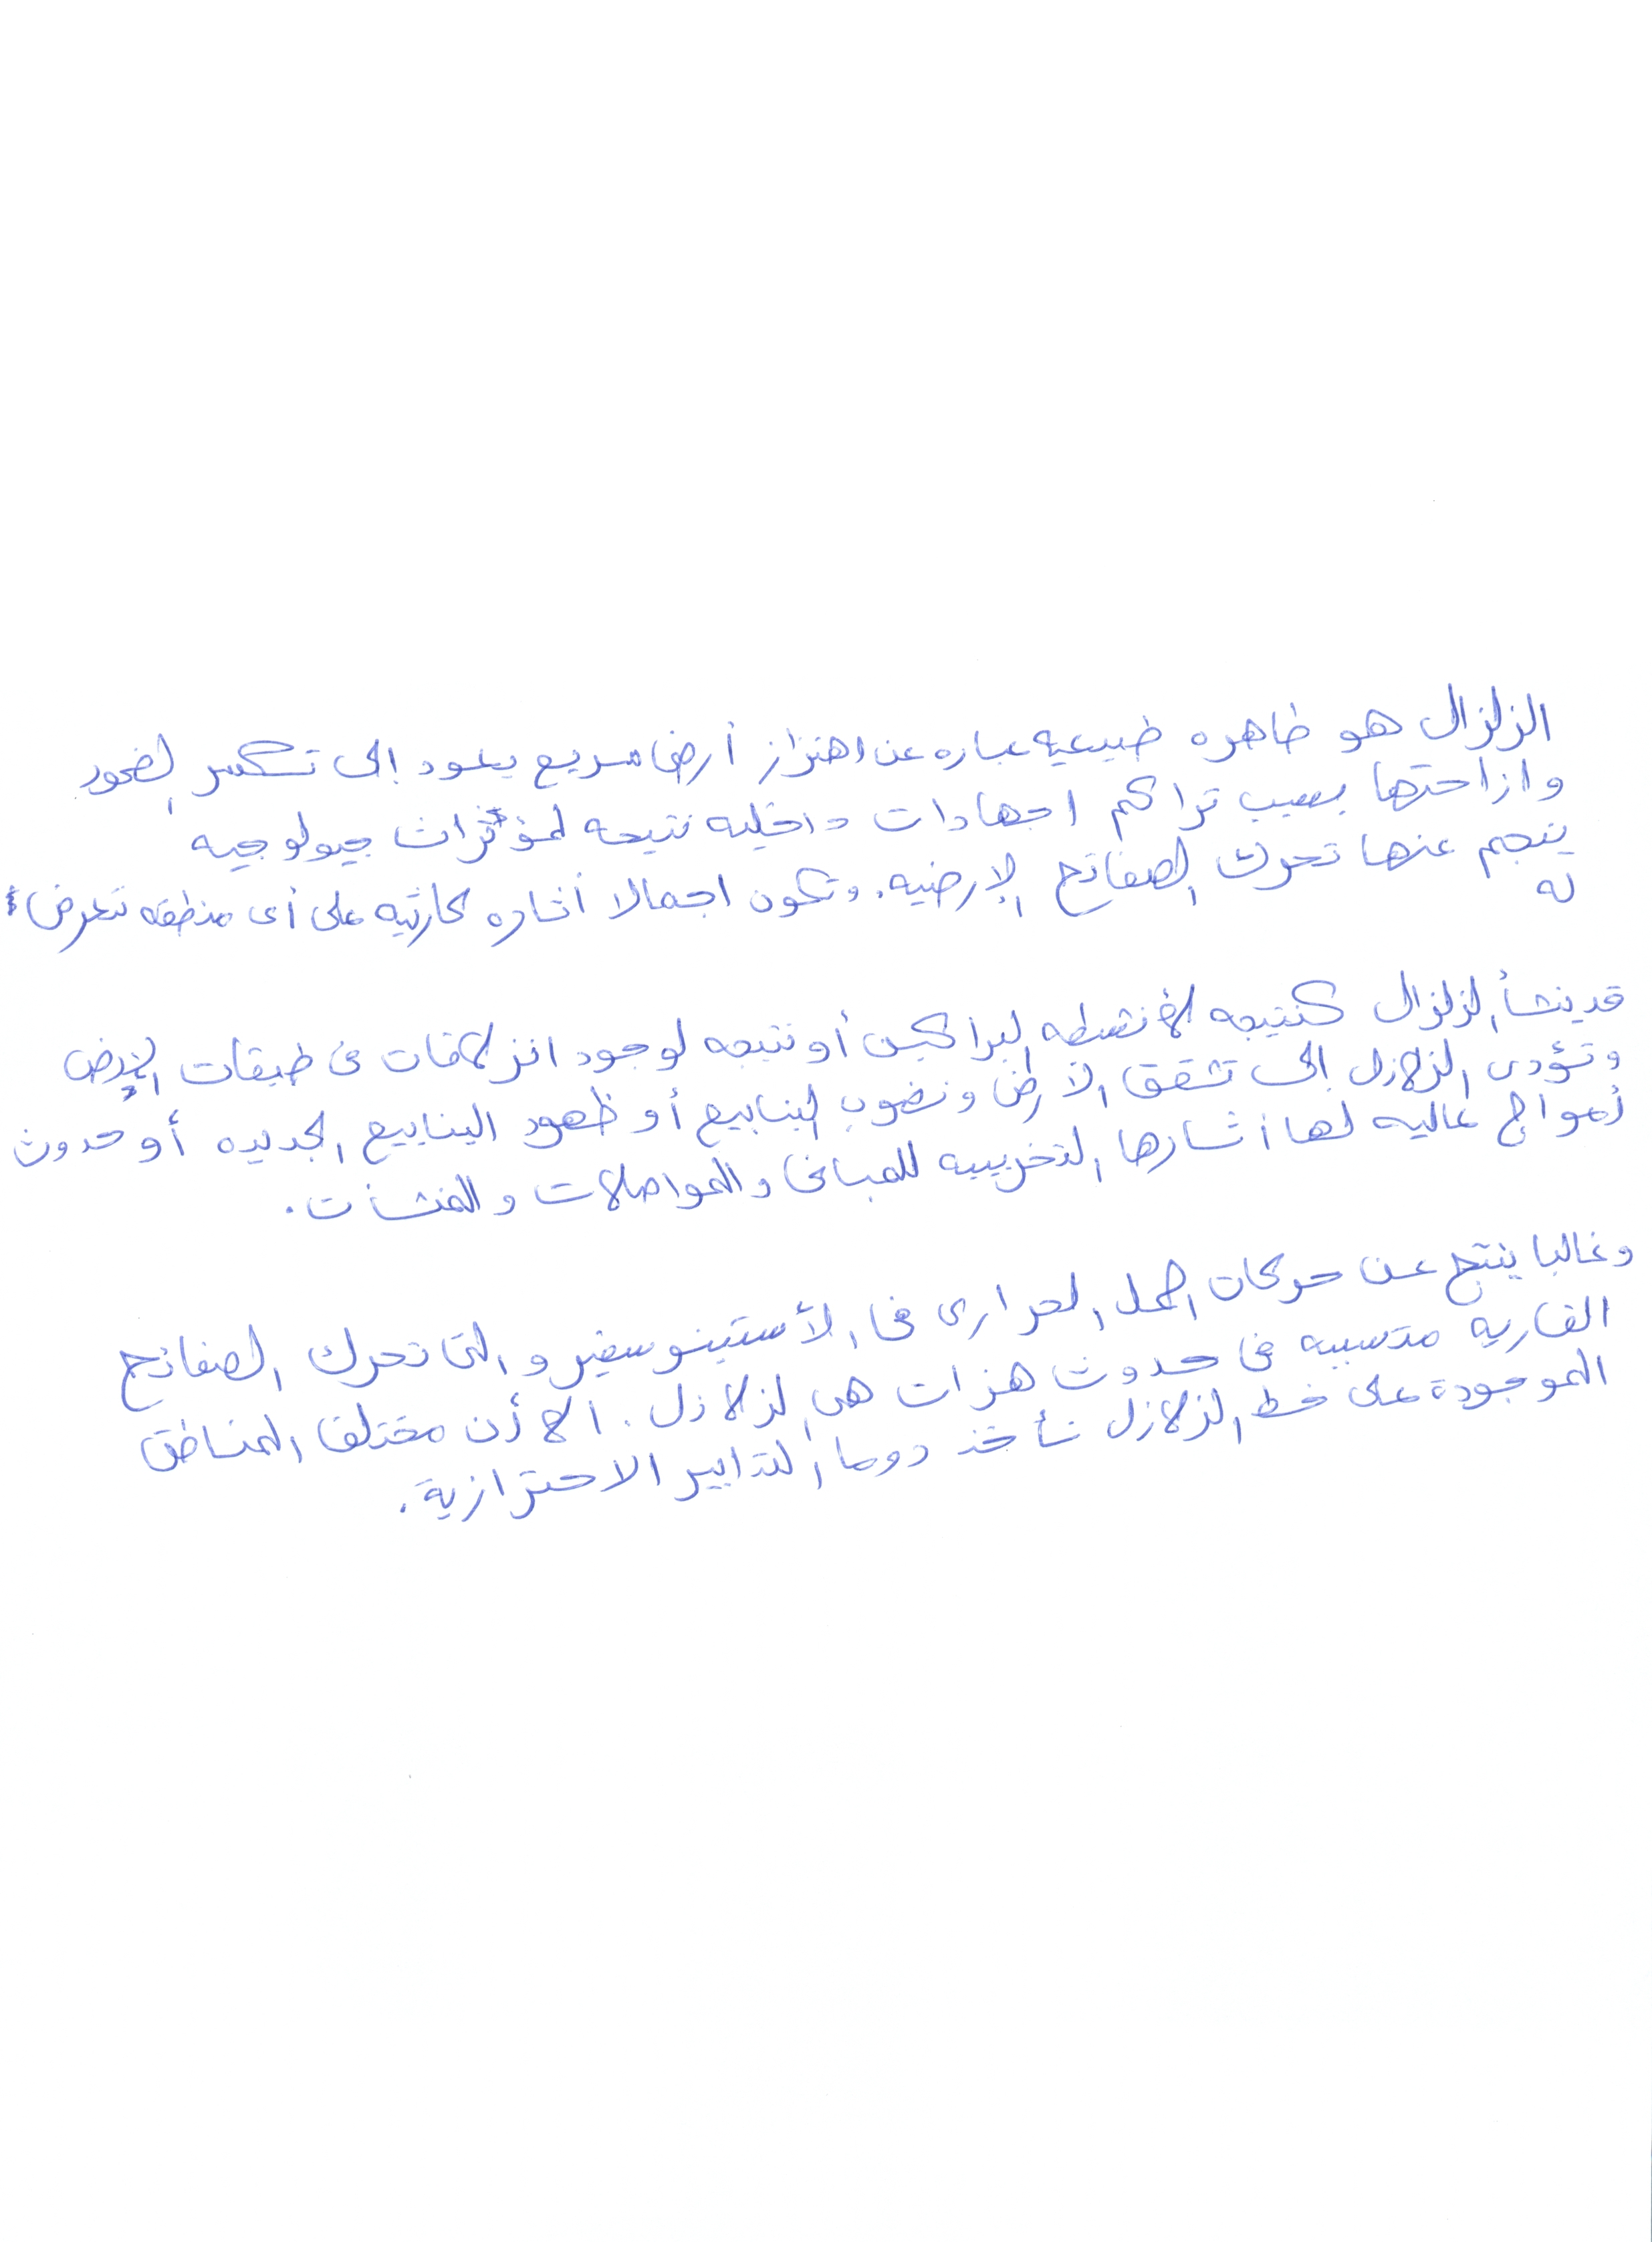 الزلزال هو ظاهره طبيعيه عباره عن اهتزاز أرضى سريع يعود إلى تكسر الصخور
وازاحتها بسبب تراكم اجهادات داخليه نتيجه لمؤثرات جيولوجيه
ينجم عنها تحرك الصفائح الارضيه. وتكون اجمالا أثاره كارثيه على أى منطقه تتعرض
له
قد ينشأ الزلزال كنتيجه لأنشطه البراكين أو نتيجه لوجود انزلاقات فى طبقات الارض
وتؤدى الزلازل إلى تشقق الأرض ونضوب الينابيع أو ظهور الينابيع الجديده أو حدوث
أمواج عاليه لها أثارها التخريبيه للمبانى والمواصلات والمنشأت.
وغالبا ينتج عن حركات الحمل الحرارى فى الأستينوسفير والتى تحرك الصفائح
القاريه متسببه فى حدوث هزات هى الزلازل. الا أن مختلف المناطق
الموجودة على خط الزلازل تأخذ دوما التدابير الاحترازية.